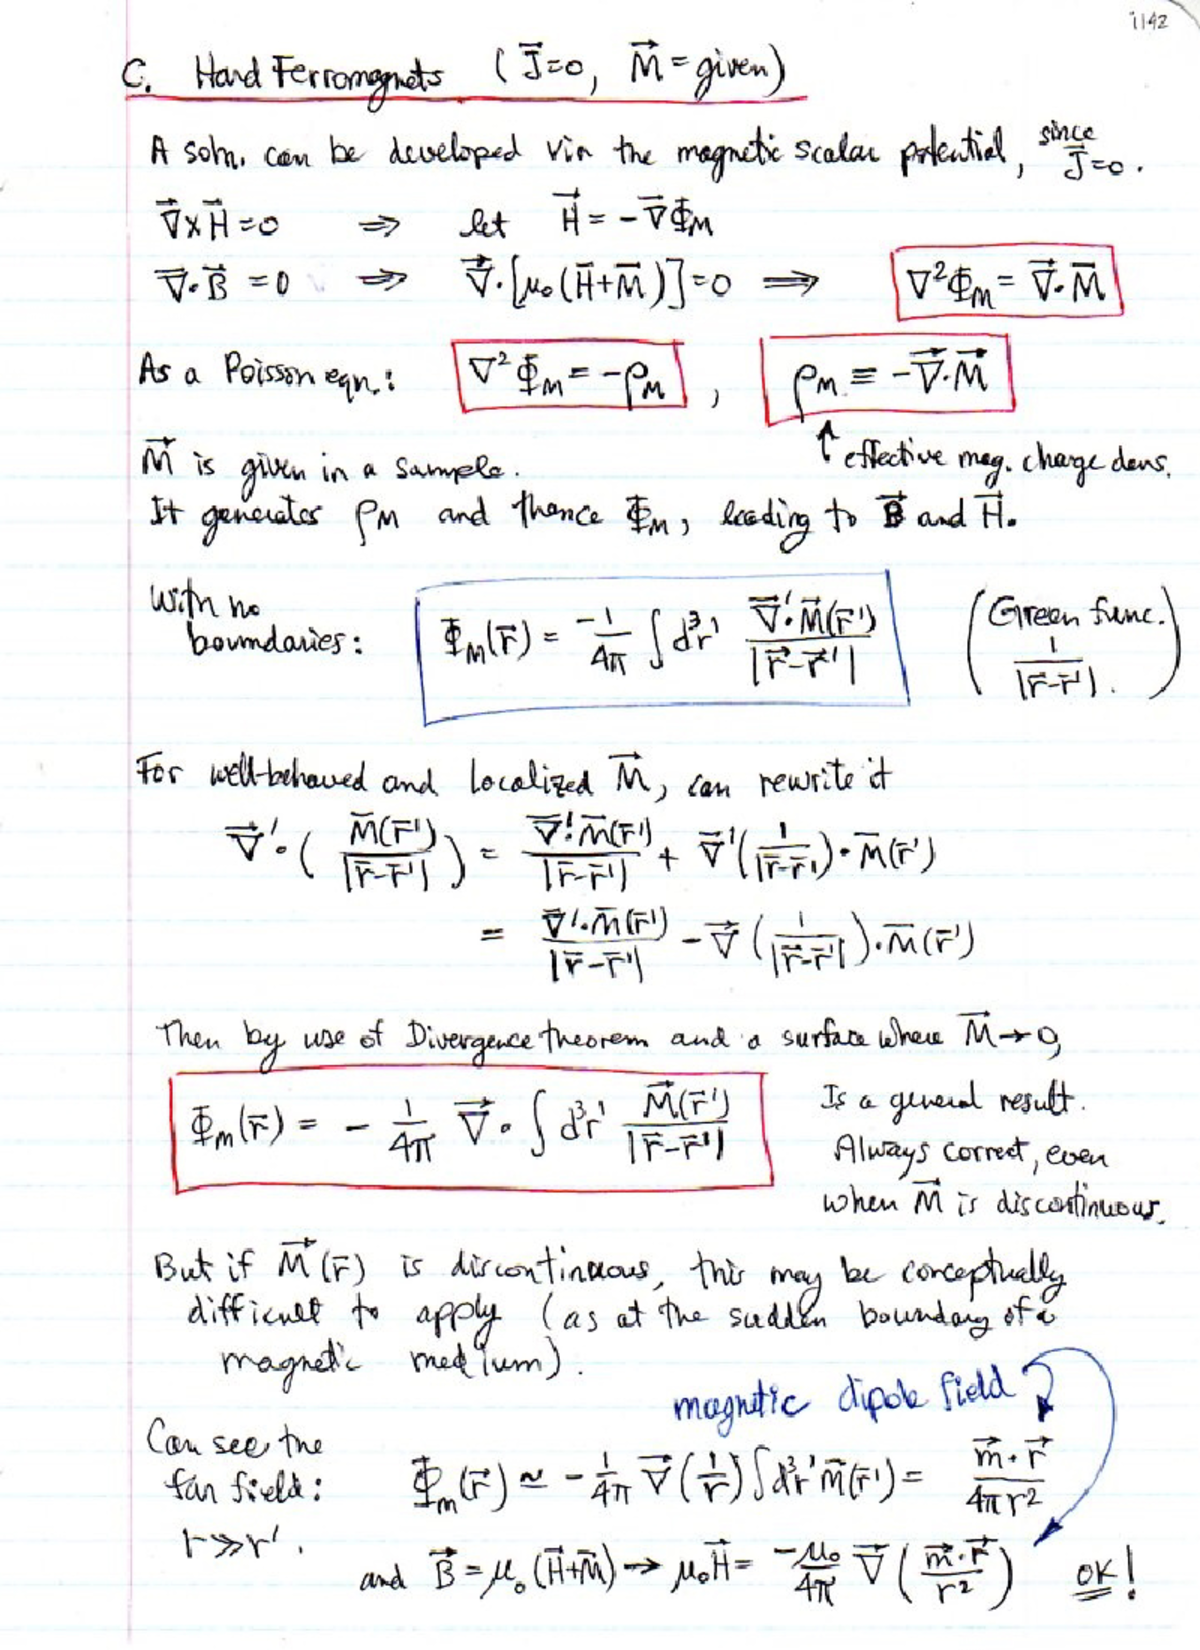 1142
C. Hard Ferromagnets ( J⃗=0, M⃗ = given)
A soln. can be developed via the magnetic scalar potential, since J⃗=0.
∇⃗×H⃗=0 ⇒ let H⃗ = -∇⃗Φ_M
∇⃗·B⃗ = 0 ⇒ ∇⃗·[μ₀(H⃗+M⃗)]=0 ⇒ ∇²Φ_M = ∇⃗·M⃗
As a Poisson eqn.: ∇²Φ_M = -ρ_M , ρ_M ≡ -∇⃗·M⃗
↑ effective mag. charge dens.
M⃗ is given in a sample.
It generates ρ_M and thence Φ_M, leading to B⃗ and H⃗.
With no boundaries: Φ_M(r⃗) = -1/4π ∫d³r' ∇⃗'·M⃗(r⃗')/|r⃗-r⃗'| (Green func. 1/|r⃗-r⃗'|.)
For well-behaved and localized M⃗, can rewrite it
∇⃗'·( M⃗(r⃗')/|r⃗-r⃗'| ) = ∇⃗'·M⃗(r⃗')/|r⃗-r⃗'| + ∇⃗'(1/|r⃗-r⃗'|)·M⃗(r⃗')
= ∇⃗'·M⃗(r⃗')/|r⃗-r⃗'| - ∇⃗(1/|r⃗-r⃗'|)·M⃗(r⃗')
Then by use of Divergence theorem and a surface where M⃗→0,
Φ_m(r⃗) = - 1/4π ∇⃗·∫d³r' M⃗(r⃗')/|r⃗-r⃗'|
Is a general result.
Always correct, even
when M⃗ is discontinuous.
But if M⃗(r⃗) is discontinuous, this may be conceptually
difficult to apply (as at the sudden boundary of a
magnetic medium).
magnetic dipole field
Can see the
far field:
r≫r'.
Φ_m(r⃗) ≃ -1/4π ∇⃗(1/r)∫d³r' m⃗(r⃗') = m⃗·r⃗/4πr²
and B⃗=μ₀(H⃗+M⃗)→μ₀H⃗= -μ₀/4π ∇⃗(m⃗·r⃗/r²) OK!